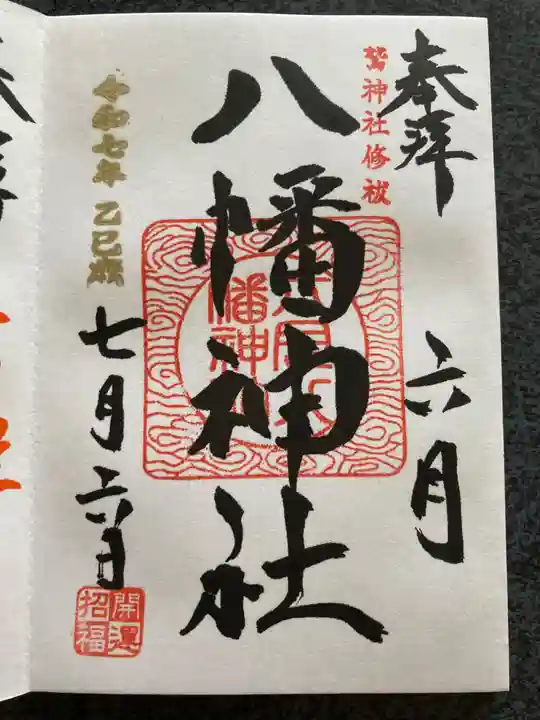 奉拝
六月
鷲神社修祓
八幡神社
令和七年 乙巳歳
七月六日
開運
招福